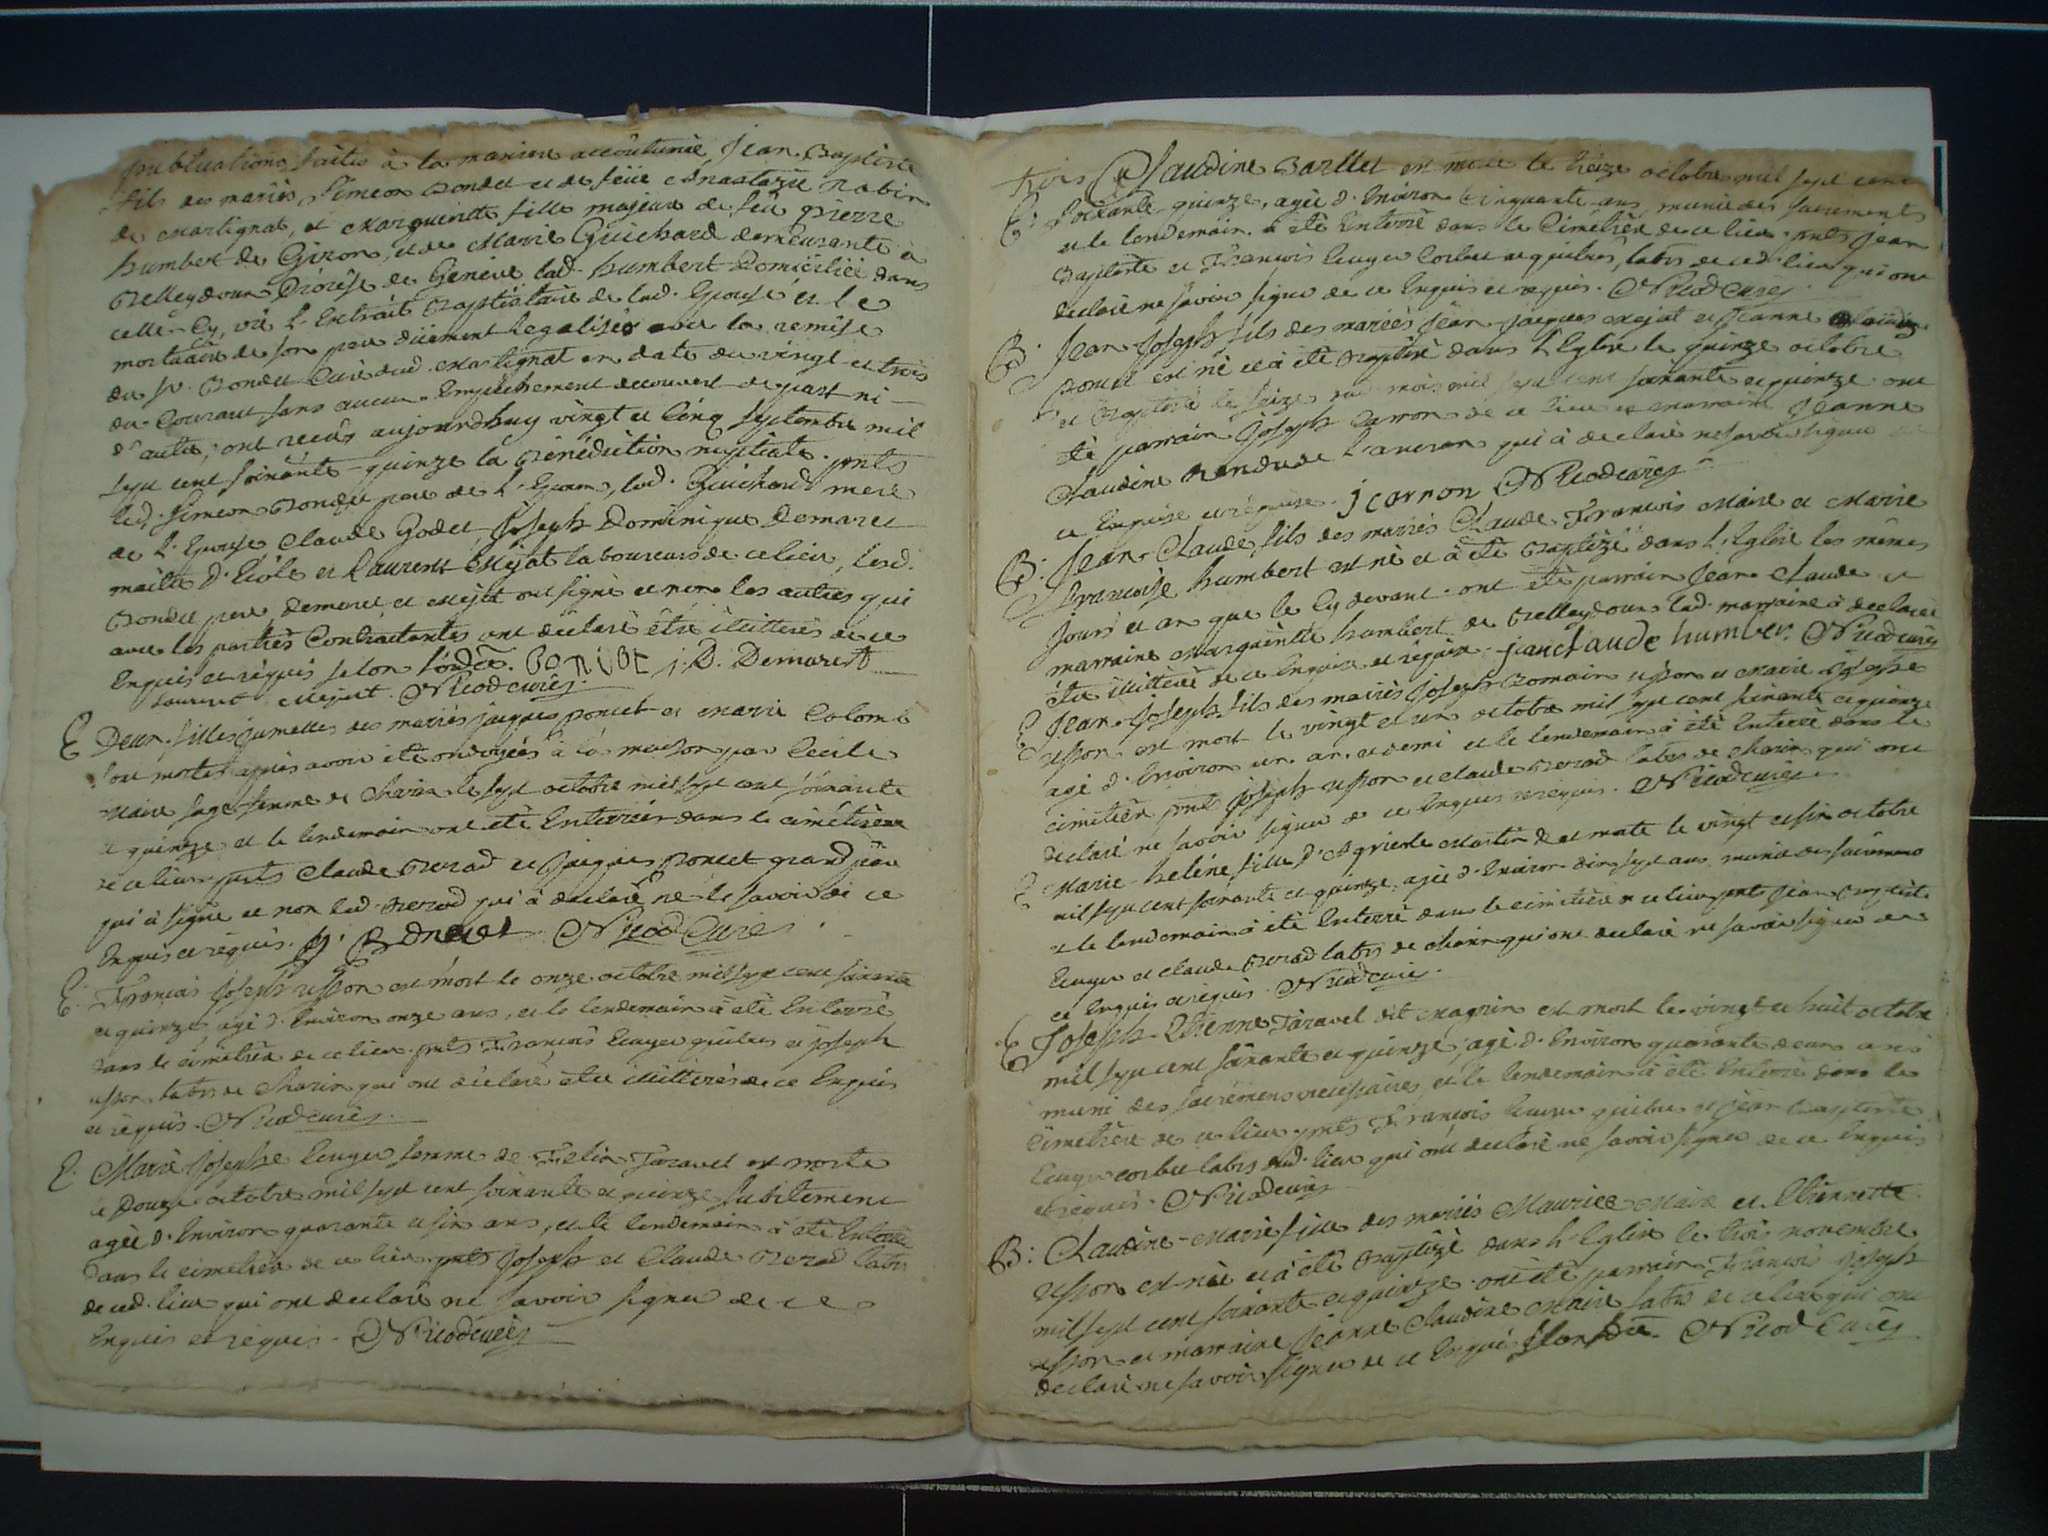 publications faites à la maniere accoûtumée Jean-Baptiste
fils des mariés Simeon Bondet et de feüe Anastazie Nabin
de Martignat, et Margueritte fille majeure de feu pierre
humbert de Giron, et de Marie Guichard demeurante à
Belleydoux Diocèse de Genève lad. humbert Domiciliée dans
celle-cy, vû l'Extrait Baptistaire de lad. Epouse et le
mortuaire de son pere düement Legalisés avec la remise
du Sr. Bondet Curé dud. Martignat en date du vingt et trois
du Courant sans aucun Empêchement découvert de part ni
d'autre, ont reçûs aujourdhuy vingt et Cinq Septembre mil
sept cent soixante-quinze la Bénédiction nuptiale. pnts
led. Simeon Bondet pere de l'Epoux, lad. Guichard mere
de l'Epouse Claude Godet, Joseph Dominique Demaret
maitre d'Ecole et Laurent Mejat laboureurs de ce lieu, lesd.
Bondet pere Demaret et Mejat ont signé et non les autres qui
avec les parties Contractantes ont déclaré être illitterés de ce
Enquis et réquis selon l'ordce. BONDET J. D. Demarest
Laurent Mejat. Nicod curé
E Deux filles jumelles des mariés jacques poncet et Marie Colomb
sont mortes après avoir été ondoyées à la maison par Cecile
Maire sage-femme de Charix le sept octobre mil sept cent soixante
et quinze et le lendemain ont été Enterrées dans le cimétière
de ce lieu pnts Claude Berrod et Jacques Poncet grand père
qui à signé et non led. Berrod qui à déclaré ne le savoir de ce
Enquis et réquis. J. Poncet Nicod Curé
E. François Joseph usson est mort le onze octobre mil sept cent soixante
et quinze, agé d'Environ onze ans, et le lendemain à été Enterré
dans le cimetière de ce lieu. pnts François Levger quibus et joseph
usson labrs de Charix qui ont déclaré être illitterés de ce Enquis
et réquis. Nicod curé
E. Marie Josephe Levger femme de Felix Taravel est morte
le Douze octobre mil sept cent soixante et quinze subitement
agée d'Environ quarante et six ans, et le lendemain à été Enterrée
dans le cimetière de ce lieu pnts Joseph et Claude Berrod labrs
de ced. lieu qui ont déclaré ne savoir signer de ce
Enquis et réquis. Nicod curé
trois Claudine Barllet est morte le treize octobre mil sept cent
E. soixante-quinze, agée d'Environ cinquante ans munie des sacrements
et le lendemain à été Enterré dans le Cimetière de ce lieu. pnts Jean
Baptiste et François Levger Corbet et quibus, labrs de ced. lieu qui ont
déclaré ne savoir signer de ce Enquis et réquis. Nicod curé
B. Jean-Joseph fils des mariés Jean jacques Mejat et Jeanne Claudine
poncet est né et à été Baptisé dans l'Eglise le quinze octobre
et Baptisé le seize du mois mil sept cent soixante et quinze ont
été parrain Joseph Carron de ce lieu et marraine Jeanne
Claudine Rendu de l'ancran qui à déclaré ne savoir signer
ce Enquise et réquise. j carron Nicod curé
B: Jean-Claude fils des mariés Claude François Maire et Marie
françoise humbert est né et à été Baptizé dans l'Eglise les mêmes
jours et an que le Cy devant. ont été parrain Jean-Claude et
marraine Marguerite humbert de Belleydoux lad. marraine à déclaré
être illitterée de ce Enquise et réquise. jean claude humber. Nicod curé
E Jean-Joseph fils des mariés Joseph Romain usson et Marie Josephe
usson est mort le vingt et un octobre mil sept cent soixante et quinze
agé d'Environ un an et demi et le lendemain à été Enterré dans le
cimetière pnts Joseph usson et Claude Berrod labrs de Charix qui ont
déclaré ne savoir signer de ce Enquis et réquis. Nicod curé
E Marie-heléne fille d'Agricole Martin est morte le vingt et six octobre
mil sept cent soixante et quinze, agée d'Environ dix sept ans munie des sacremens
et le lendemain à été Enterré dans le cimetière de ce lieu pnts Jean Baptiste
Levger et Claude Berrod labrs de Charix qui ont déclaré ne savoir signer de
ce Enquis et réquis. Nicod curé.
E Joseph-Etienne Taravel dit Magnin est mort le vingt et huit octobre
mil sept cent soixante et quinze, agé d'Environ quarante deux ans
muni des sacrémens necessaires et le lendemain à été Enterré dans le
Cimetière de ce lieu pnts François Levger quibus et Jean baptiste
Levger corbet labrs dud. lieu qui ont déclaré ne savoir signer de ce Enquis
et réquis. Nicod curé
B: Claudine-Marie fille des mariés Maurice Maire et Etiennette
usson est née et à été Baptizé dans l'Eglise le trois novembre
mil sept cent soixante et quinze. ont été parrain François Joseph
usson et marraine Jeanne Claudine Maire labrs de ce lieu qui ont
déclaré ne savoir signer de ce Enquis selon l'ordce. Nicod Curé